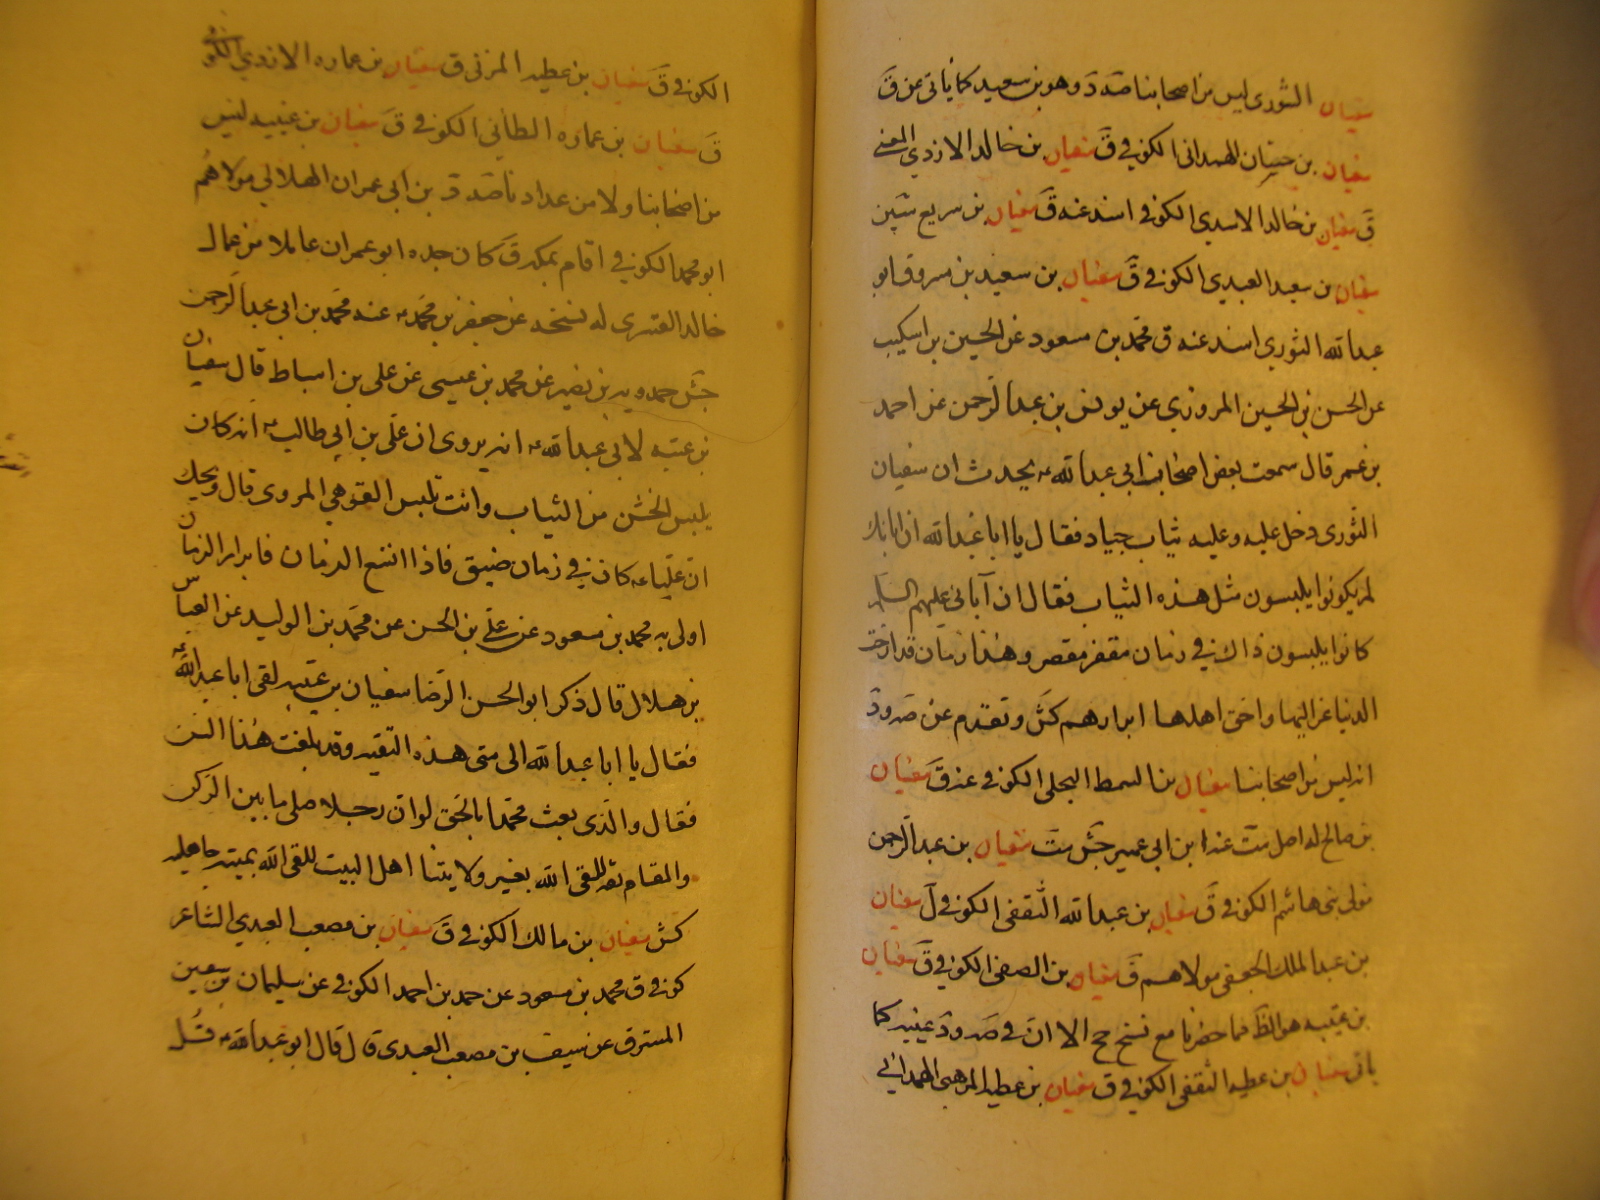 سفيان الثوري ليس من اصحابنا صه د وهو بن سعيد كما ياتي عن ق
سفيان بن حسان الهمداني الكوفي ق سفيان بن خالد الازدي المعنى
ق سفيان بن خالد الاسدي الكوفي اسند عنه ق سفيان بن سريع سين
سفيان بن سعيد العبدي الكوفي ق سفيان بن سعيد بن مسروق ابو
عبد الله الثوري اسند عنه ق محمد بن مسعود عن الحسين بن اسكيب
عن الحسن بن الحسين المروزي عن يونس بن عبد الرحمن عن احمد
بن عمر قال سمعت بعض اصحاب ابي عبد الله ع يحدث ان سفيان
الثوري دخل عليه وعليه ثياب جياد فقال يا ابا عبد الله ان ابائك
لم يكونوا يلبسون مثل هذه الثياب فقال ان آبائي عليهم السلم
كانوا يلبسون ذاك في زمان مقفر مقصر وهذا زمان قد ارخت
الدنيا عزاليها واحق اهلها ابرارهم كش وتقدم عن صه ود
انه ليس من اصحابنا سفيان بن السمط البجلي الكوفي عنه ق سفيان
بن صالح له اصل ست عنه ابن ابي عمير جش ست سفيان بن عبد الرحمن
مولى بني هاشم الكوفي ق سفيان بن عبد الله الثقفي الكوفي ل سفيان
بن عبد الملك الجعفي مولاهم ق سفيان بن الصفي الكوفي ق سفيان
بن عتيبه هو الظ فما حضرنا مع نسخ جح الا ان في صه ود عيينه كما
ياتي سفيان بن عطيه الثقفي الكوفي ق سفيان بن عطيه المرهبي الهمداني
الكوفي ق سفيان بن عطيه المزني ق سفيان بن عماره الازدي الكوفي
ق سفيان بن عماره الطائي الكوفي ق سفيان بن عيينه ليس
من اصحابنا ولا من عدادنا صه د ق بن ابي عمران الهلالي مولاهم
ابو محمد الكوفي اقام بمكه ق كان جده ابو عمران عاملا من عمال
خالد القسري له نسخه عن جعفر بن محمد ع عنه محمد بن ابي عبد الرحمن
جش حمدويه بن نصير عن محمد بن عيسى عن علي بن اسباط قال سفيان
بن عتيبه لابي عبد الله ع انه يروى ان علي بن ابي طالب ع انه كان
يلبس الخشن من الثياب وانت تلبس القوهي المروى قال ويحك
ان عليا ع كان في زمان ضيق فاذا اتسع الزمان فابرار الزمان
اولى به محمد بن مسعود عن علي بن الحسن عن محمد بن الوليد عن العباس
بن هلال قال ذكر ابو الحسن الرضا سفيان بن عتيبه لقى ابا عبد الله ع
فقال يا ابا عبد الله الى متى هذه التقيه وقد بلغت هذا السن
فقال والذي بعث محمدا بالحق لو ان رجلا صلى ما بين الركن
والمقام ثم للقى الله بغير ولايتنا اهل البيت للقى الله بميته جاهليه
كش سفيان بن مالك الكوفي ق سفيان بن مصعب العبدي الشاعر
كوفي ق محمد بن مسعود عن حمد بن احمد الكوفي عن سليمان بن سعين
المسترق عن سيف بن مصعب العبدي ق ل قال ابو عبد الله ع قل